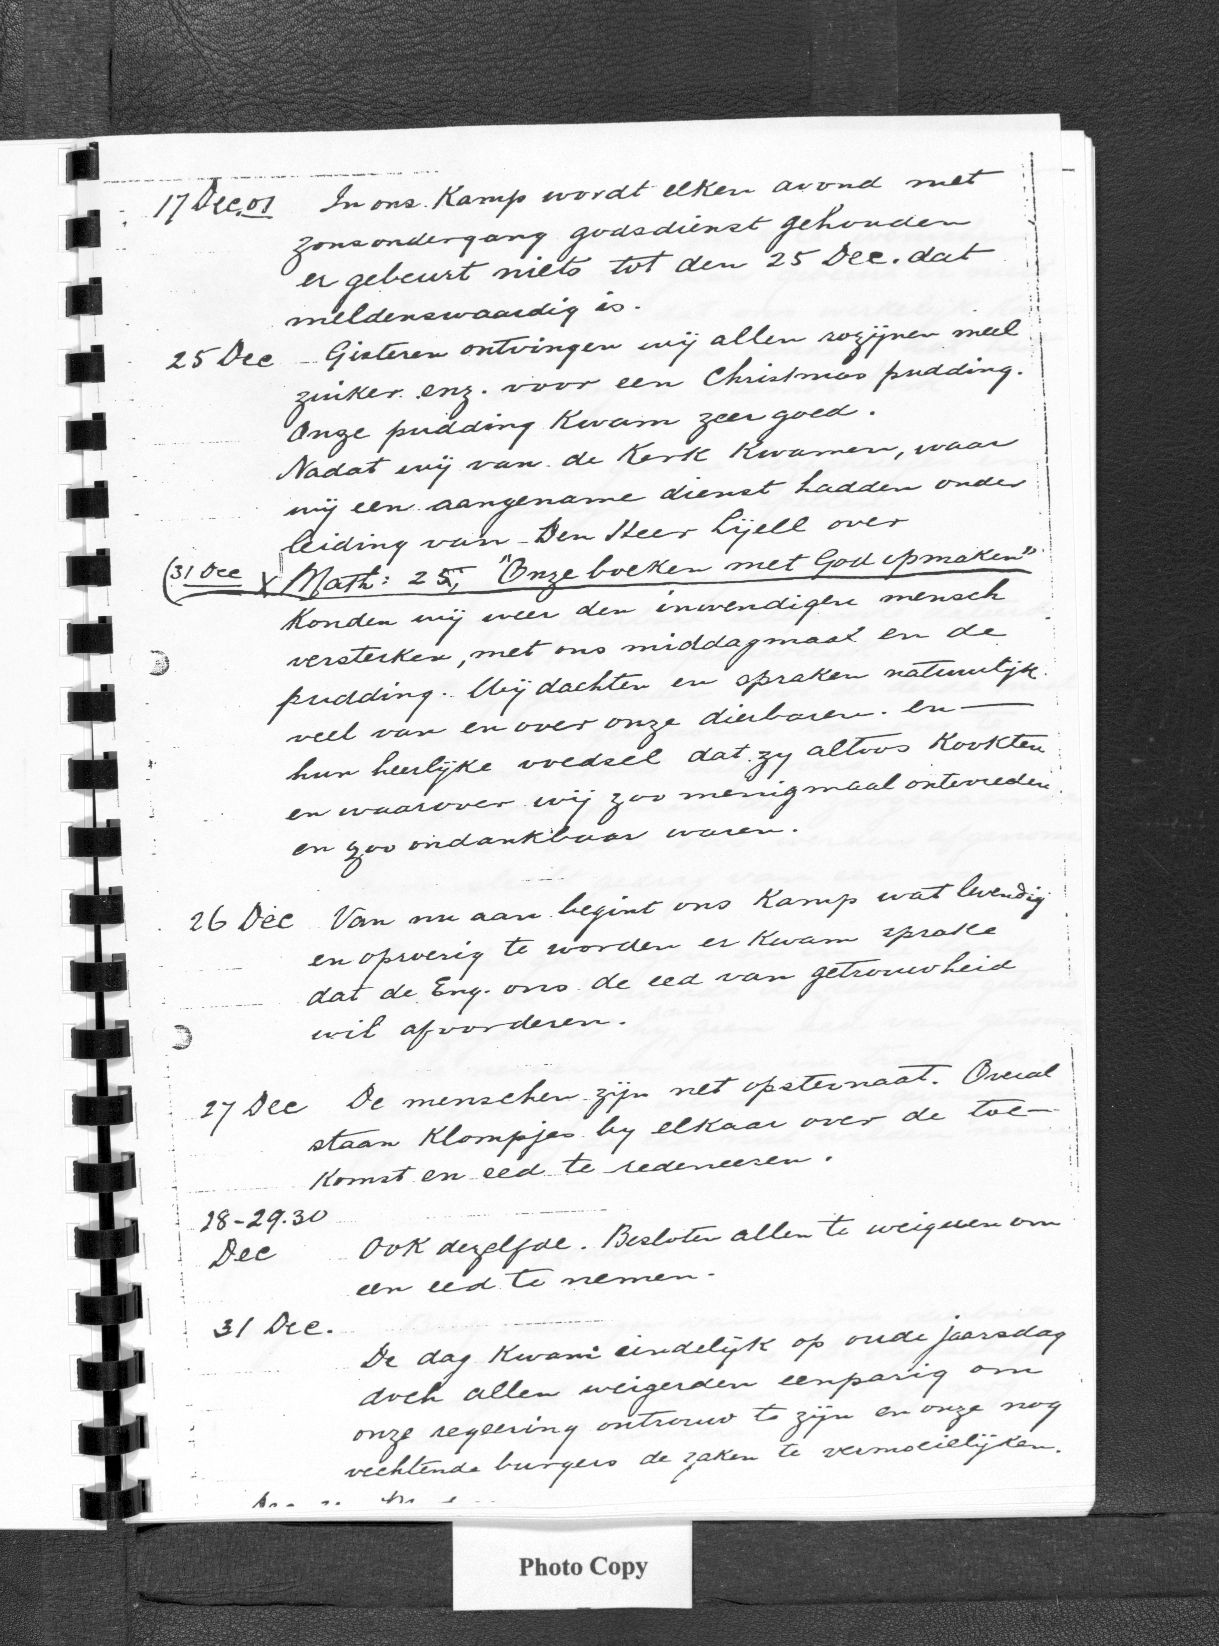 17 Dec. 01 In ons Kamp wordt elken avond met
zonsondergang godsdienst gehouden
er gebeurt niets tot den 25 Dec. dat
meldenswaardig is.
25 Dec Gisteren ontvingen wij allen rozijnen meel
zuiker enz. voor een Christmas pudding.
Onze pudding Kwam zeer goed.
Nadat wij van de Kerk Kwamen, waar
wij een aangename dienst hadden onder
leiding van Den Heer Lijell over
(31 Dec X Math: 25, "Onze boeken met God opmaken"
Konden wij weer den inwendigen mensch
versterken, met ons middagmaal en de
pudding. Wij dachten en spraken natuurlijk
veel van en over onze dierbaren. en —
hun heerlijke voedsel dat zy altoos Kookten
en waarover wij zoo menigmaal ontevreden
en zoo ondankbaar waren.
26 Dec Van nu aan begint ons Kamp wat levendig
en oproerig te worden er Kwam sprake
dat de Eng. ons de eed van getrouwheid
wil afvorderen.
27 Dec De menschen zijn net opsternaat. Overal
staan Klompjes by elkaar over de toe-
Komst en eed te redeneeren.
28-29.30
Dec Ook dezelfde. Besloten allen te weigeren om
een eed te nemen.
31 Dec.
De dag Kwam eindelijk op oude jaarsdag
doch allen weigerden eenparig om
onze regeering ontrouw te zijn en onze nog
vechtende burgers de zaken te vermoeielijken.
Photo Copy